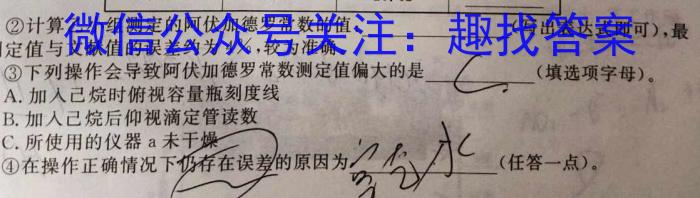 ②计算 组测定的阿伏加德罗常数的值 (写出表达式即可),最
微信公众号关注：趣找答案
定值与文献值的误差约为 %,较为准确
③下列操作会导致阿伏加德罗常数测定值偏大的是 C (填选项字母)。
A.加入己烷时俯视容量瓶刻度线
B.加入己烷后仰视滴定管读数
C.所使用的仪器a未干燥
④在操作正确情况下仍存在误差的原因为 水 (任答一点)。